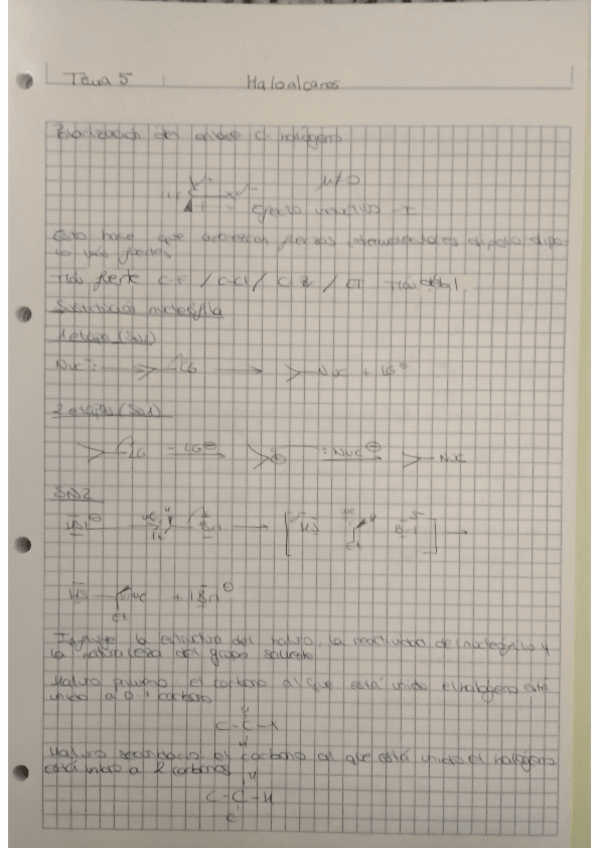 Tema 5 Haloalcanos
Polarización del enlace C-halógeno
μ≠0
efecto inductivo -I
Esto hace que aparezcan fuerzas intermoleculares dipolo dipo
lo más fuertes
Más fuerte C-F / C-Cl / C-Br / C-I Más débil
Sustitución nucleófila
1 etapa (SN2)
Nuc⁻: LG → Nuc + LG⊖
2 etapas (SN1)
LG -LG⊖ ⊕ :Nuc⊖ Nuc
SN2
Influye la estructura del haluro, la reactividad del nucleófilo y
la naturaleza del grupo saliente
Haluro primario el carbono al que está unido el halógeno está
unido a 0 1 carbono
H
C-C-X
H
Haluro secundario el carbono al que está unido el halógeno
está unido a 2 carbonos
H
C-C-H
C